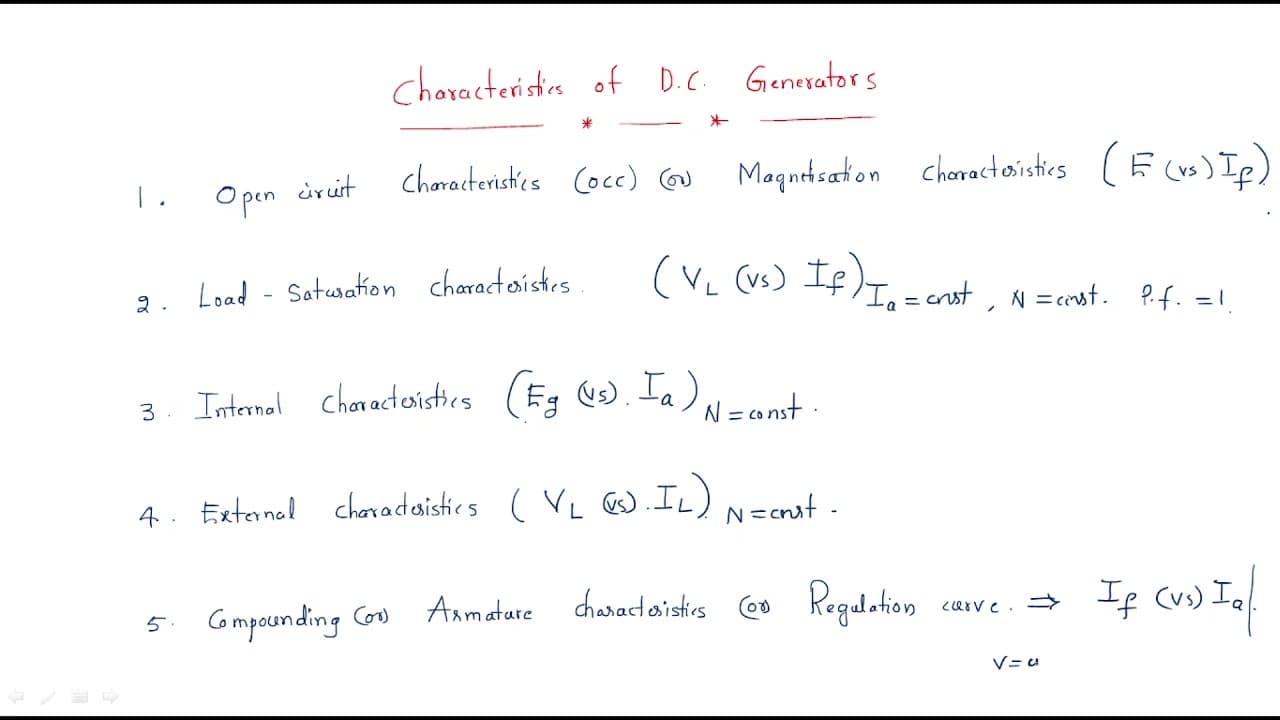 Characteristics of D.C. Generators
1. Open circuit Characteristics (OCC) (or) Magnetisation characteristics (E (vs) If)
2. Load - Saturation characteristics. (VL (vs) If) Ia = cnst, N = const. P.f. = 1.
3. Internal Characteristics (Eg (vs). Ia) N = const.
4. External characteristics (VL (vs). IL) N = cnst.
5. Compounding (or) Armature characteristics (or) Regulation curve. ⇒ If (vs) Ia|.
V =